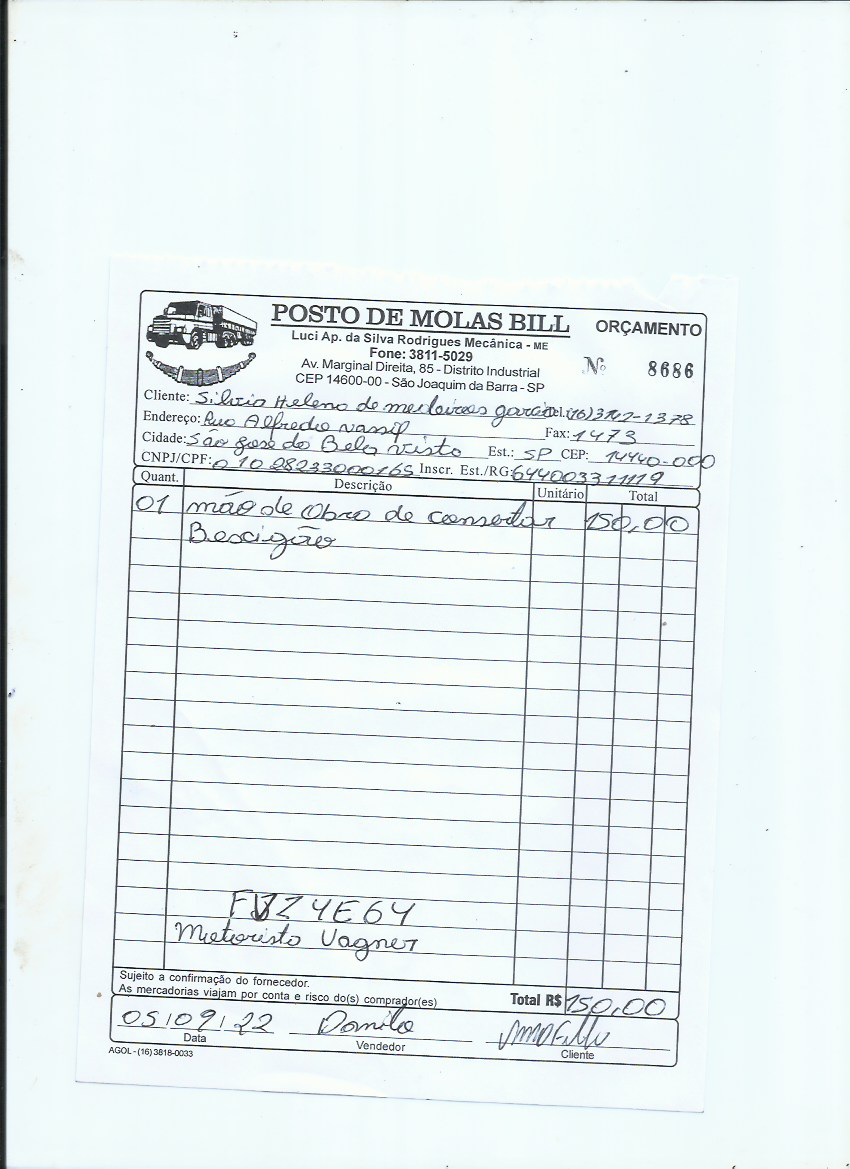 POSTO DE MOLAS BILL
ORÇAMENTO
Luci Ap. da Silva Rodrigues Mecânica - ME
Fone: 3811-5029
Av. Marginal Direita, 85 - Distrito Industrial
CEP 14600-00 - São Joaquim da Barra - SP
Nº 8686
Cliente: Silvia Helena de medeiros garcia Tel. (16) 3702-1378
Endereço: Rua Alfredo nassif Fax: 1473
Cidade: São José do Bela visto Est.: SP CEP: 14440-000
CNPJ/CPF: 010 28233000165 Inscr. Est./RG: 644003311119
Quant. Descrição Unitário Total
01 mão de Obra de consertar 150,00
Bexigão
4E64
Motoristo Vagner
Sujeito a confirmação do fornecedor.
As mercadorias viajam por conta e risco do(s) comprador(es)
Total R$ 150,00
05/09/22 Danilo
Data Vendedor Cliente
AGOL - (16) 3818-0033